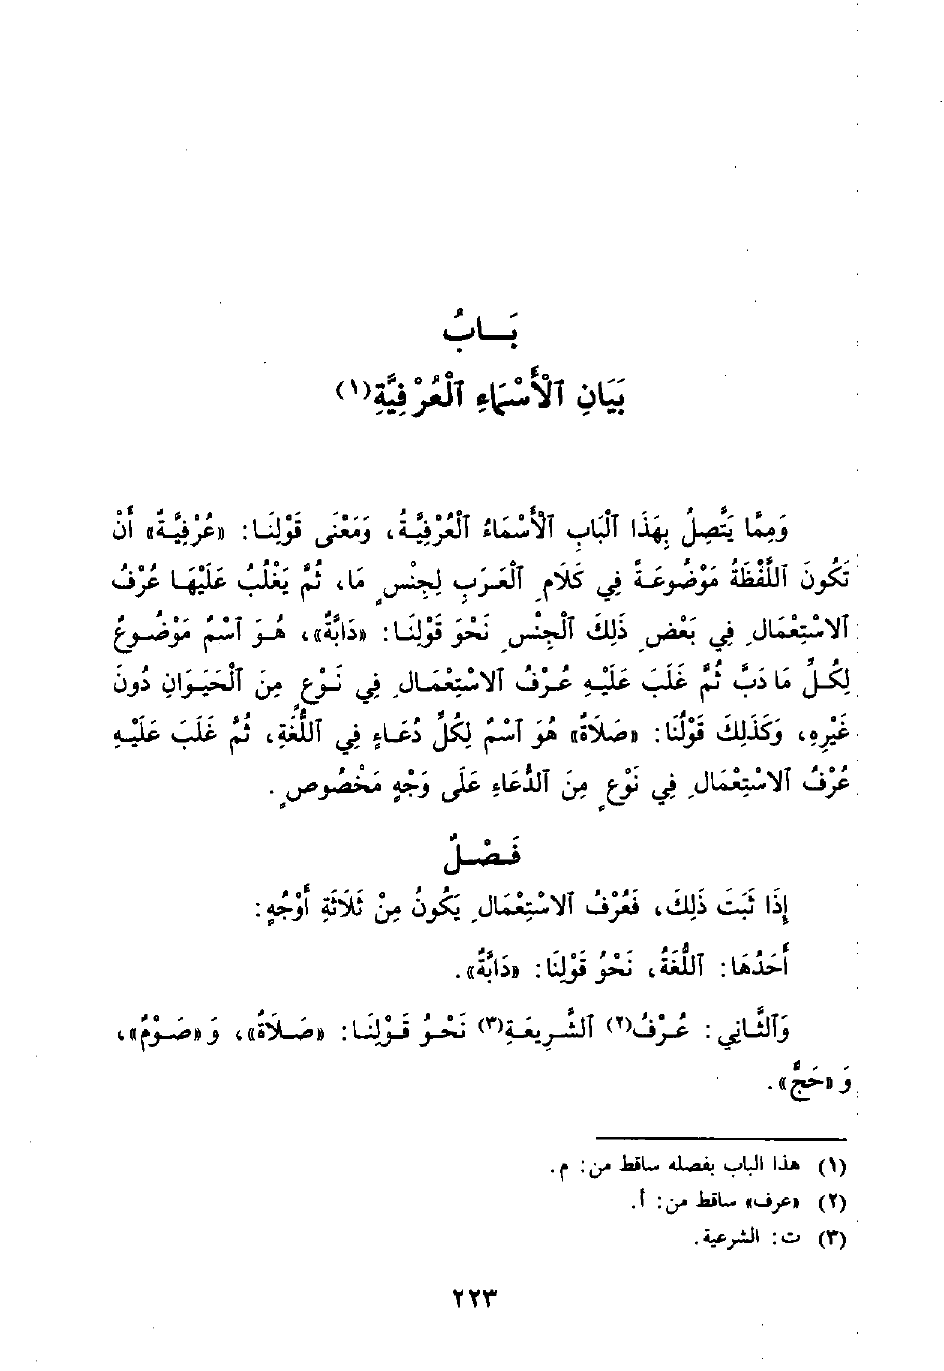 بَـابُ
بَيَانِ ٱلْأَسْمَاءِ ٱلْعُرْفِيَّةِ(١)
وَمِمَّا يَتَّصِلُ بِهَذَا ٱلْبَابِ ٱلْأَسْمَاءُ ٱلْعُرْفِيَّةُ، وَمَعْنَى قَوْلِنَا: «عُرْفِيَّةٌ» أَنْ
تَكُونَ ٱللَّفْظَةُ مَوْضُوعَةً فِي كَلَامِ ٱلْعَرَبِ لِجِنْسٍ مَا، ثُمَّ يَغْلُبُ عَلَيْهَا عُرْفُ
ٱلاسْتِعْمَالِ فِي بَعْضِ ذَلِكَ ٱلْجِنْسِ نَحْوَ قَوْلِنَا: «دَابَّةٌ»، هُوَ ٱسْمٌ مَوْضُوعٌ
لِكُلِّ مَا دَبَّ ثُمَّ غَلَبَ عَلَيْهِ عُرْفُ ٱلاسْتِعْمَالِ فِي نَوْعٍ مِنَ ٱلْحَيَوَانِ دُونَ
غَيْرِهِ، وَكَذَلِكَ قَوْلُنَا: «صَلَاةٌ» هُوَ ٱسْمٌ لِكُلِّ دُعَاءٍ فِي ٱللُّغَةِ، ثُمَّ غَلَبَ عَلَيْهِ
عُرْفُ ٱلاسْتِعْمَالِ فِي نَوْعٍ مِنَ ٱلدُّعَاءِ عَلَى وَجْهٍ مَخْصُوصٍ.
فَصْلٌ
إِذَا ثَبَتَ ذَلِكَ، فَعُرْفُ ٱلاسْتِعْمَالِ يَكُونُ مِنْ ثَلَاثَةِ أَوْجُهٍ:
أَحَدُهَا: ٱللُّغَةُ، نَحْوُ قَوْلِنَا: «دَابَّةٌ».
وَٱلثَّانِي: عُرْفُ(٢) ٱلشَّرِيعَةِ(٣) نَحْوُ قَوْلِنَا: «صَلَاةٌ»، وَ«صَوْمٌ»،
وَ«حَجٌّ».
(١) هذا الباب بفصله ساقط من: م.
(٢) «عرف» ساقط من: أ.
(٣) ت: الشرعية.
٢٢٣